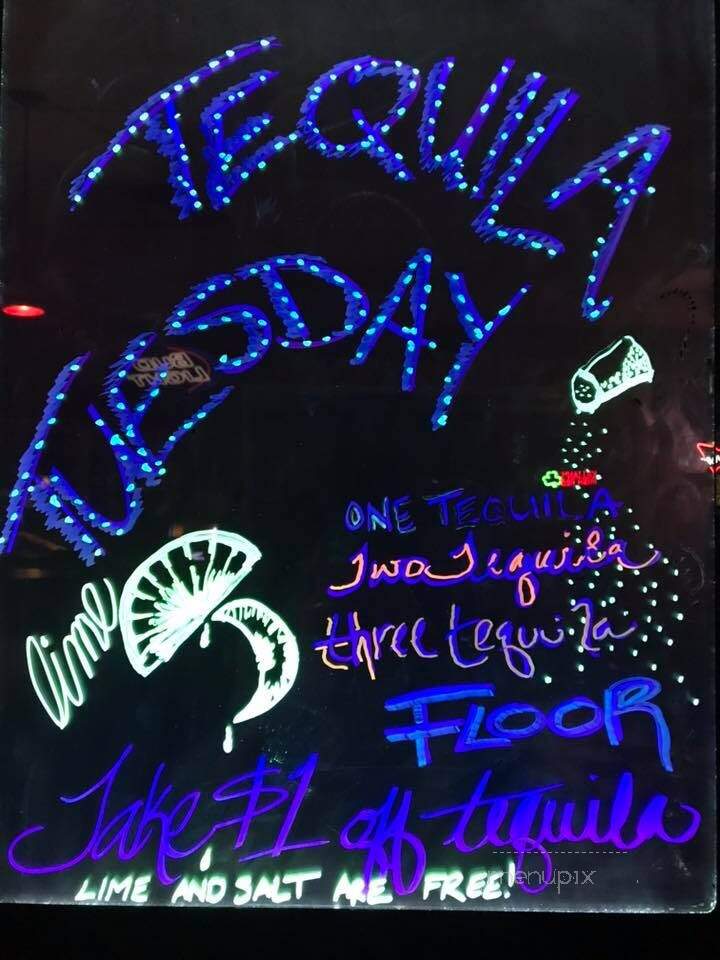 TEQUILA
TUESDAY
ONE TEQUILA
Two Tequila
three tequila
FLOOR
lime
Take $1 off tequila
LIME AND SALT ARE FREE!
menupix